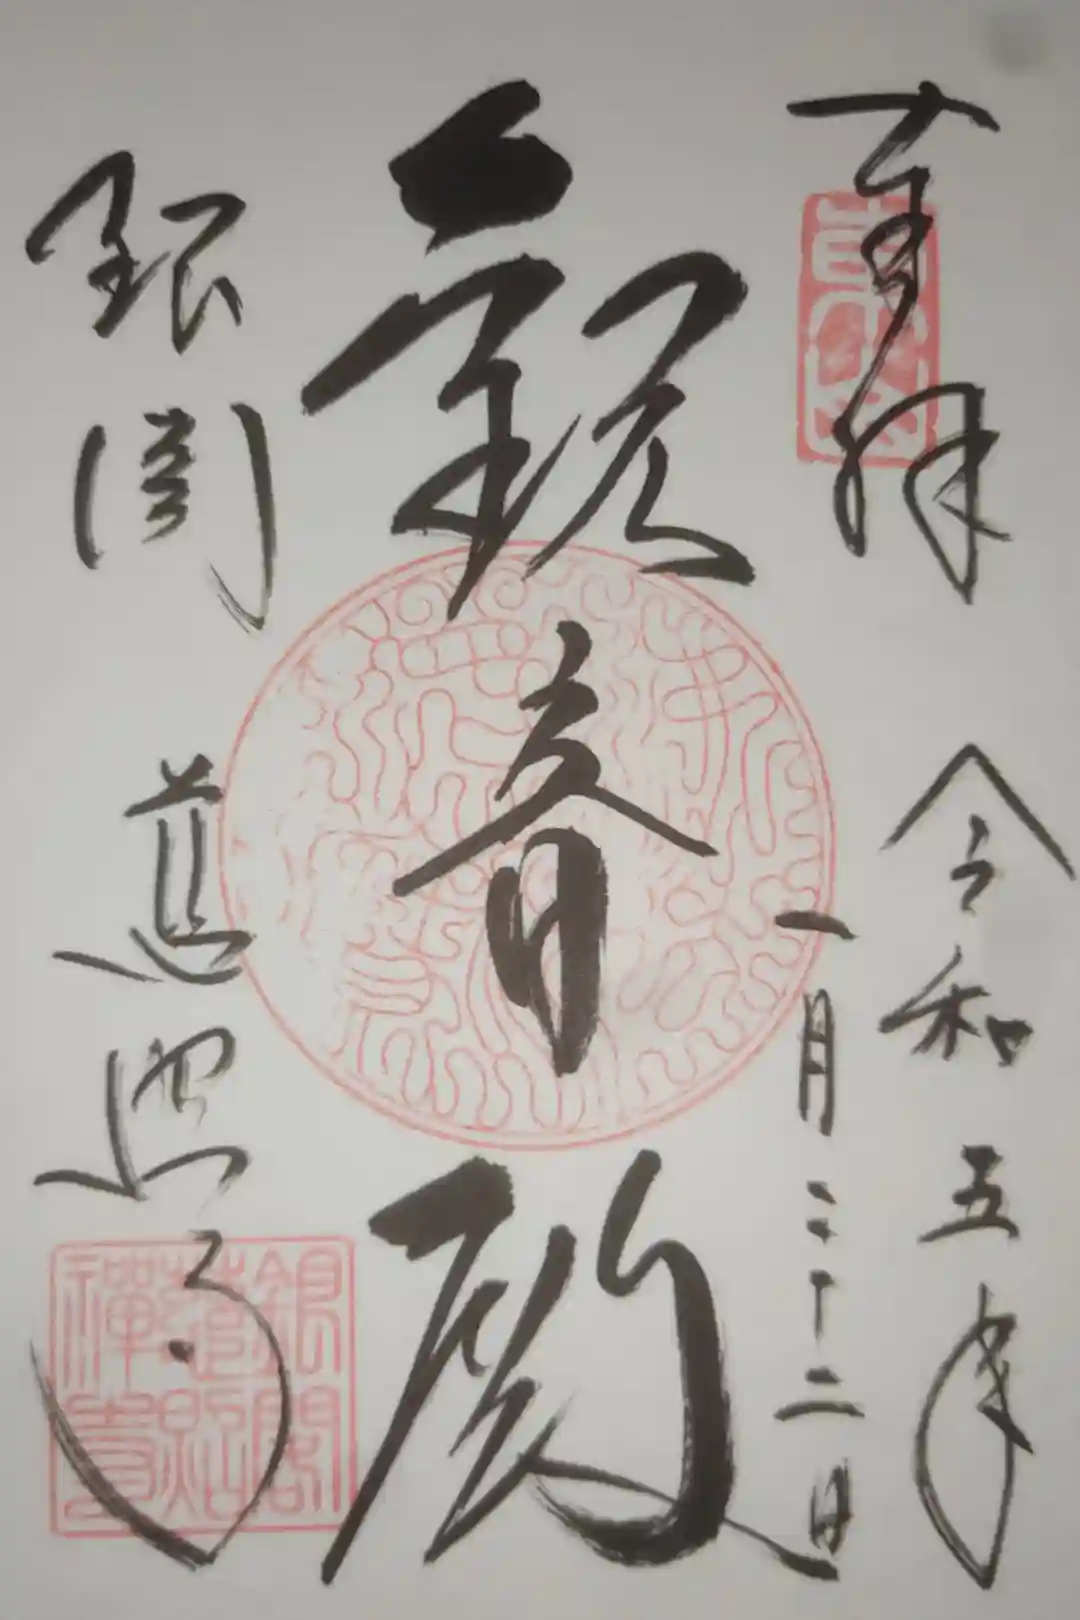 奉拝
令和五年
一月二十二日
観音殿
銀閣
慈照寺
銀閣
慈照
禪寺